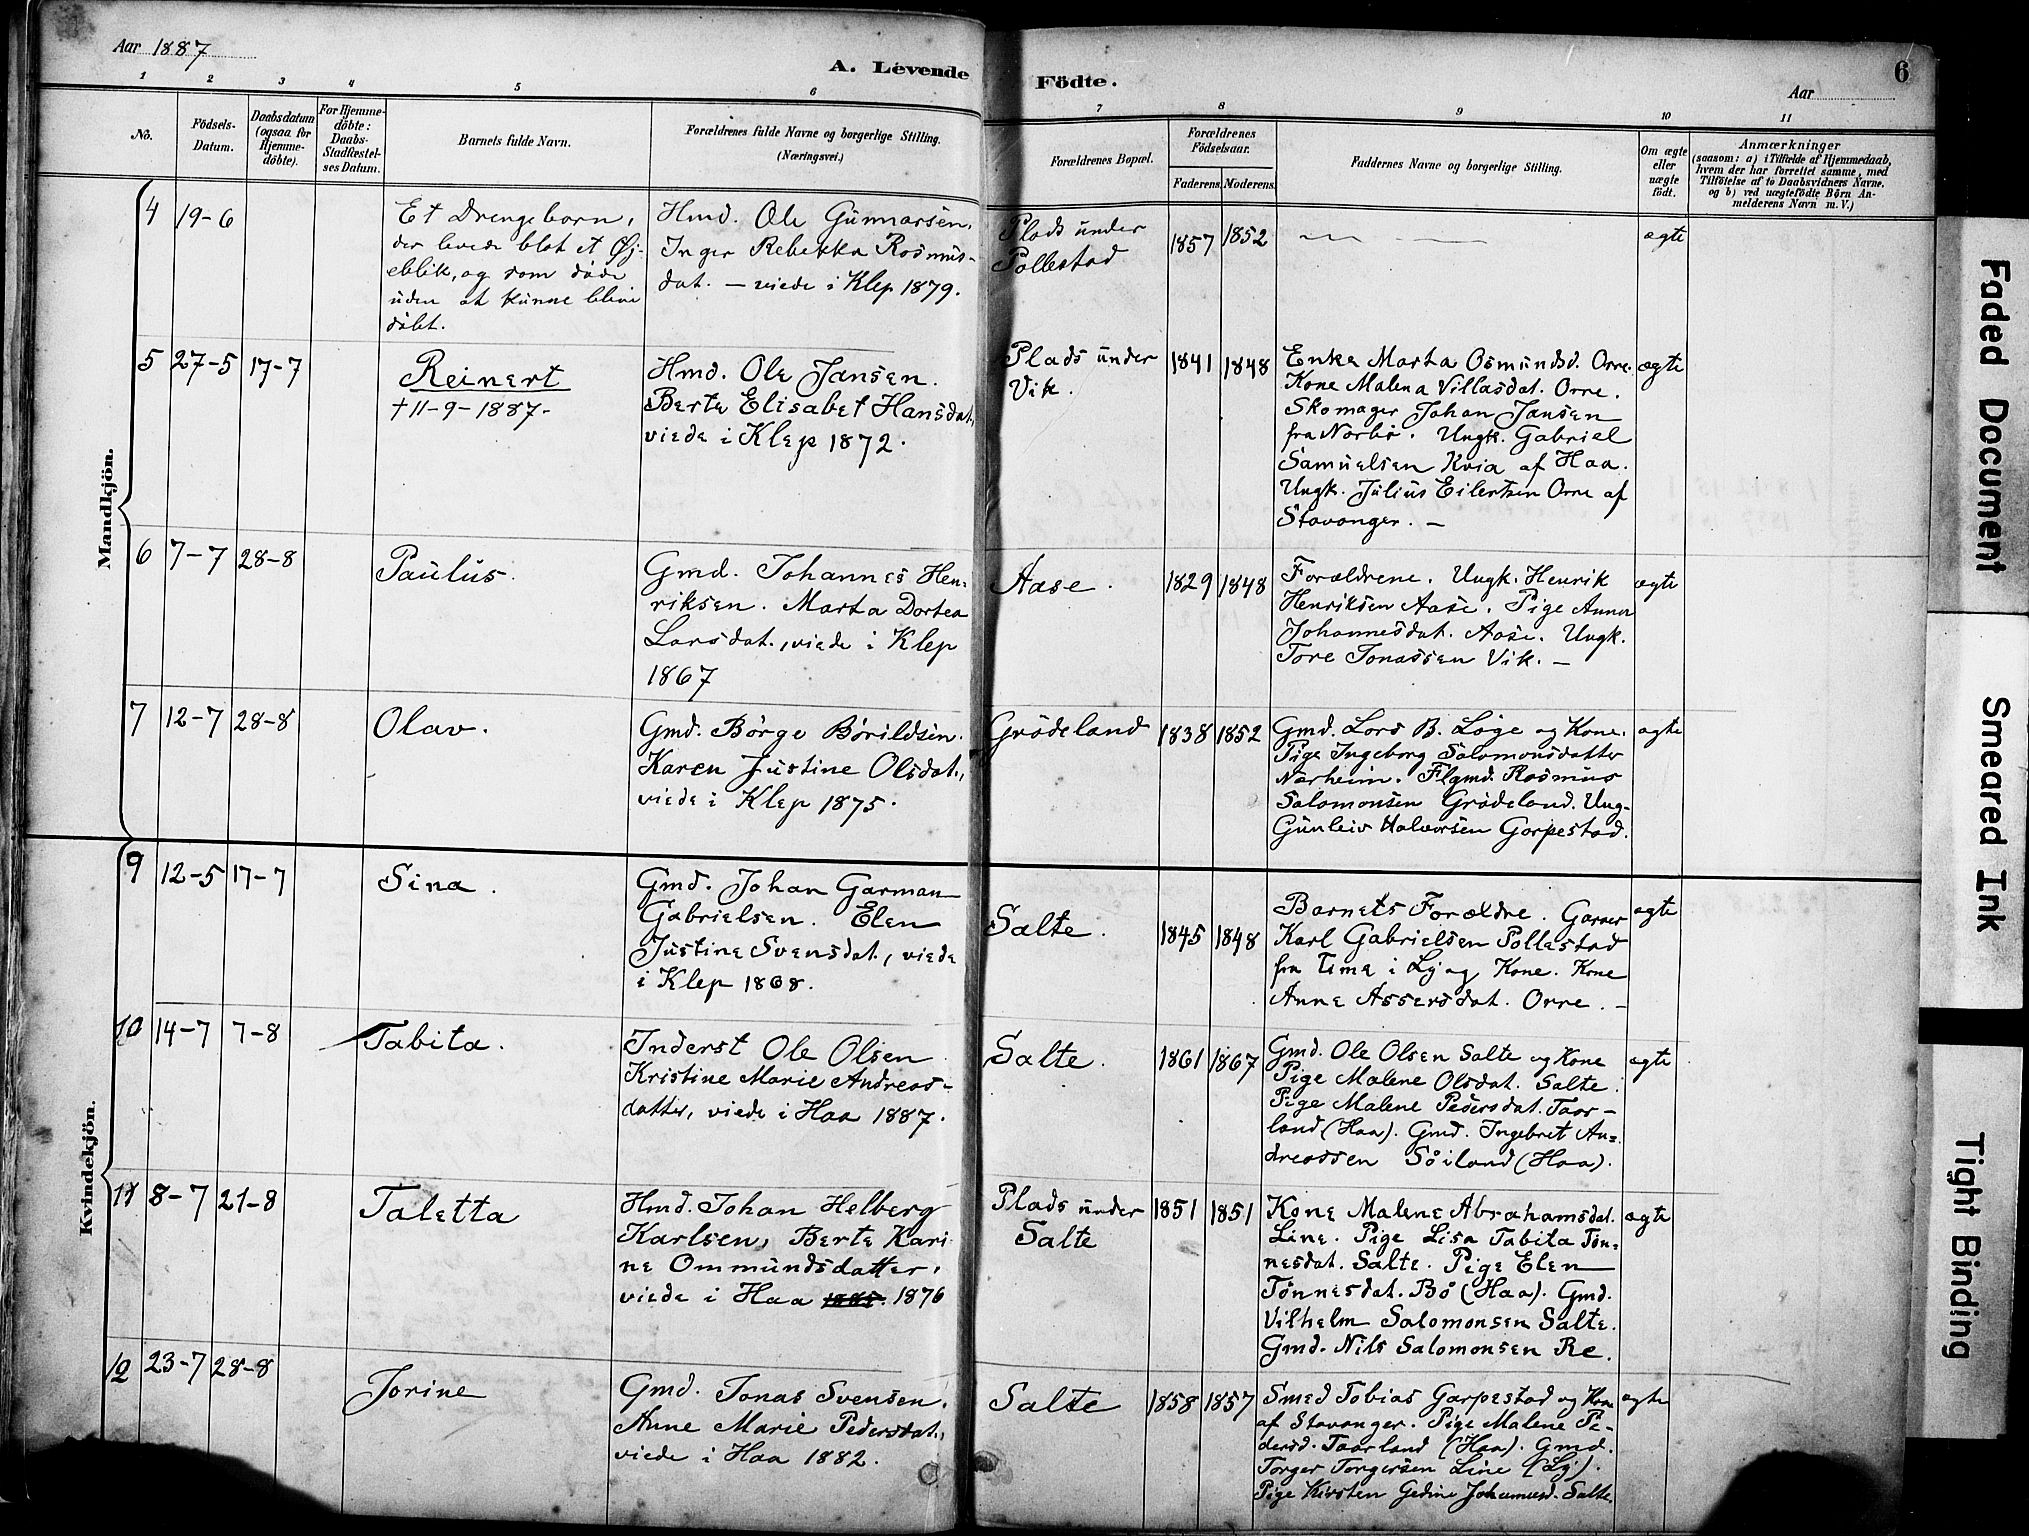 Aar 1887
A. Levende Födte.
Aar
6
1 2 3 4 5 6 7 8 9 10 11
No.
Födsels-
Datum.
Daabsdatum
(ogsaa for
Hjemme-
döbte).
For Hjemme-
döbte:
Daabs-
Stadfæstel-
ses Datum.
Barnets fulde Navn.
Forældrenes fulde Navne og borgerlige Stilling.
(Næringsvei.)
Forældrenes Bopæl.
Forældrenes
Födselsaar.
Faderens. Moderens.
Faddernes Navne og borgerlige Stilling.
Om ægte
eller
uægte
födt.
Anmærkninger
(saasom: a) i Tilfælde af Hjemmedaab,
hvem der har forrettet samme, med
Tilföielse af to Daabsvidners Navne.
og b) ved uægtefödte Börn An-
melderens Navn m. V.)
Mandkjön.
4 19-6
Et Drengebarn,
der levede blot et Øj-
eblik, og som døde
uden at kunne blive
døbt.
Hmd. Ole Gunnarsen,
Inger Rebekka Rasmus-
dat. — viede i Klep 1879.
Plads under
Pollestad
1857 1852
— —
ægte
5 27-5 17-7
Reinert
† 11-9-1887-
Hmd. Ole Jansen.
Berte Elisabet Hansdat,
viede i Klep 1872.
Plads under
Vik.
1841 1848
Enke Marta Osmundsd. Orre.
Kone Malena Villasdat. Orre.
Skomager Johan Jansen
fra Norbø. Ungk. Gabriel
Samuelsen Kvia af Haa.
Ungk. Julius Eilertsen Orre af
Stavanger. —
ægte
6 7-7 28-8
Paulus.
Gmd. Johannes Hen-
riksen. Marta Dortea
Larsdat., viede i Klep
1867
Aase.
1829 1848
Forældrene. Ungk. Henrik
Henriksen Aase. Pige Anna
Johannesdat. Aase. Ungk.
Tore Jonassen Vik. —
ægte
7 12-7 28-8
Olav.
Gmd. Børge Børildsen.
Karen Justine Olsdat.,
viede i Klep 1875.
Grødeland
1838 1852
Gmd. Lars B. Løge og Kone.
Pige Ingeborg Salomonsdatter
Nærheim. Flgmd. Rasmus
Salomonsen Grødeland. Ung-
Gunleiv Halvorsen Garpestad.
ægte
Kvindekjön.
9 12-5 17-7
Sina.
Gmd. Johan Garman
Gabrielsen. Elen
Justine Svensdat., viede
i Klep 1868.
Salte.
1845 1848
Barnets Forældre. Garver
Karl Gabrielsen Pollestad
fra Time i Lg og Kone. Kone
Anne Assersdat. Orre. —
ægte
10 14-7 7-8
Tabita.
Inderst Ole Olsen
Kristine Marie Andreas-
datter, viede i Haa 1887.
Salte.
1861 1867
Gmd. Ole Olsen Salte og Kone
Pige Malene Olsdat. Salte.
Pige Malene Pedersdat. Taar-
land (Haa). Gmd. Ingebret An-
dreassen Søiland (Haa).
ægte
11 8-7 21-8
Taletta
Hmd. Johan Helberg
Karlsen, Berte Kari-
ne Ommundsdatter,
viede i Haa 1876
Plads under
Salte
1851 1851
Kone Malene Abrahamsdat.
Line. Pige Lisa Tabita Tøn-
nesdat. Salte. Pige Elen
Tønnesdat. Bø (Haa). Gmd.
Vilhelm Salomonsen Salte.
Gmd. Nils Salomonsen Re.
ægte
12 23-7 28-8
Jorine
Gmd. Jonas Svensen,
Anne Marie Pedersdat.,
viede i Haa 1882.
Salte
1858 1857
Smed Tobias Garpestad og Kone
af Stavanger. Pige Malene Pe-
dersd. Taarland (Haa). Gmd.
Torger Torgersen Line (Lg).
Pige Kirsten Gedine Johannesd. Salte.
ægte
Faded Document
Smeared Ink
Tight Binding